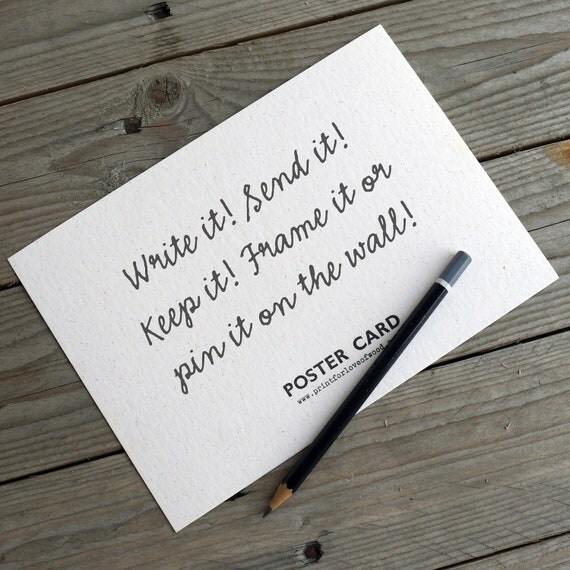 Write it! Send it!
Keep it! Frame it or
pin it on the wall!
POSTER CARD
www.printforloveofwood.